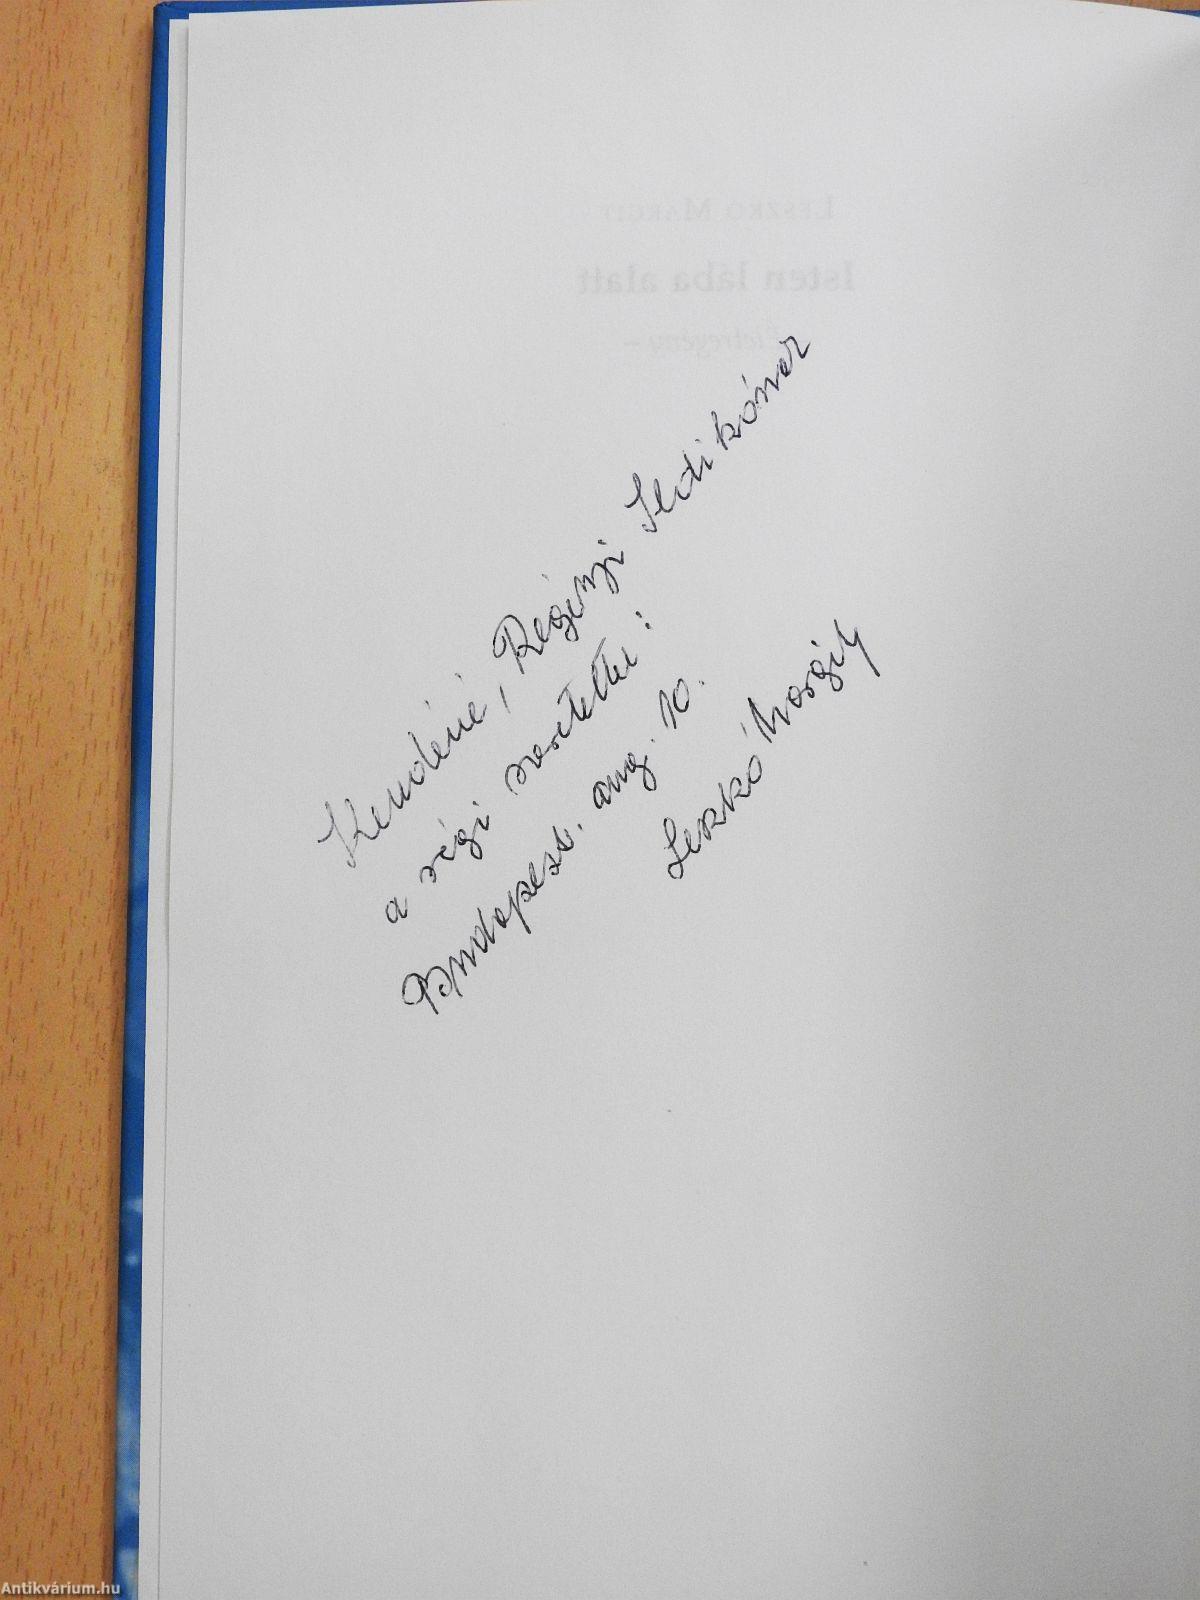 LESZKÓ MARGIT
Isten lába alatt
Életregény –
Kendéné, Regényi Ildikónak
a régi szeretettel:
Budapest. aug. 10.
Leszkó Margit
Antikvárium.hu